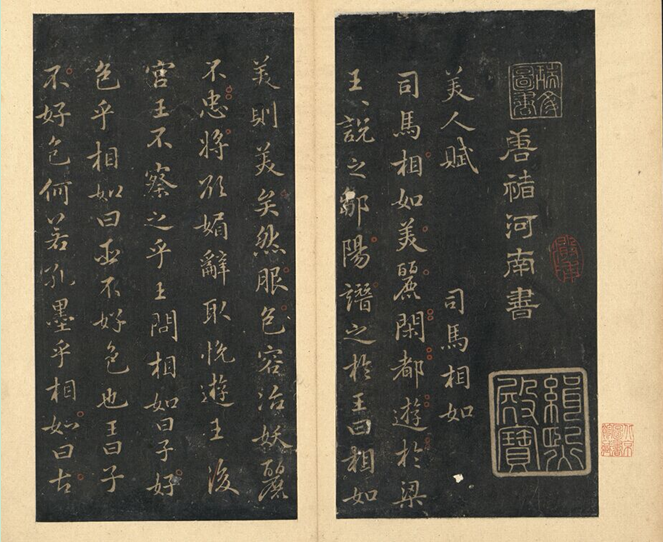 唐褚河南書
緝熙殿寶
美人賦 司馬相如
司馬相如美麗閑都遊於梁
王〻說之鄒陽譖之於王曰相如
美則美矣然服色容冶妖麗
不忠將欲媚辭取悅遊王後
宮王不察之乎王問相如曰子好
色乎相如曰臣不好色也王曰子
不好色何若孔墨乎相如曰古